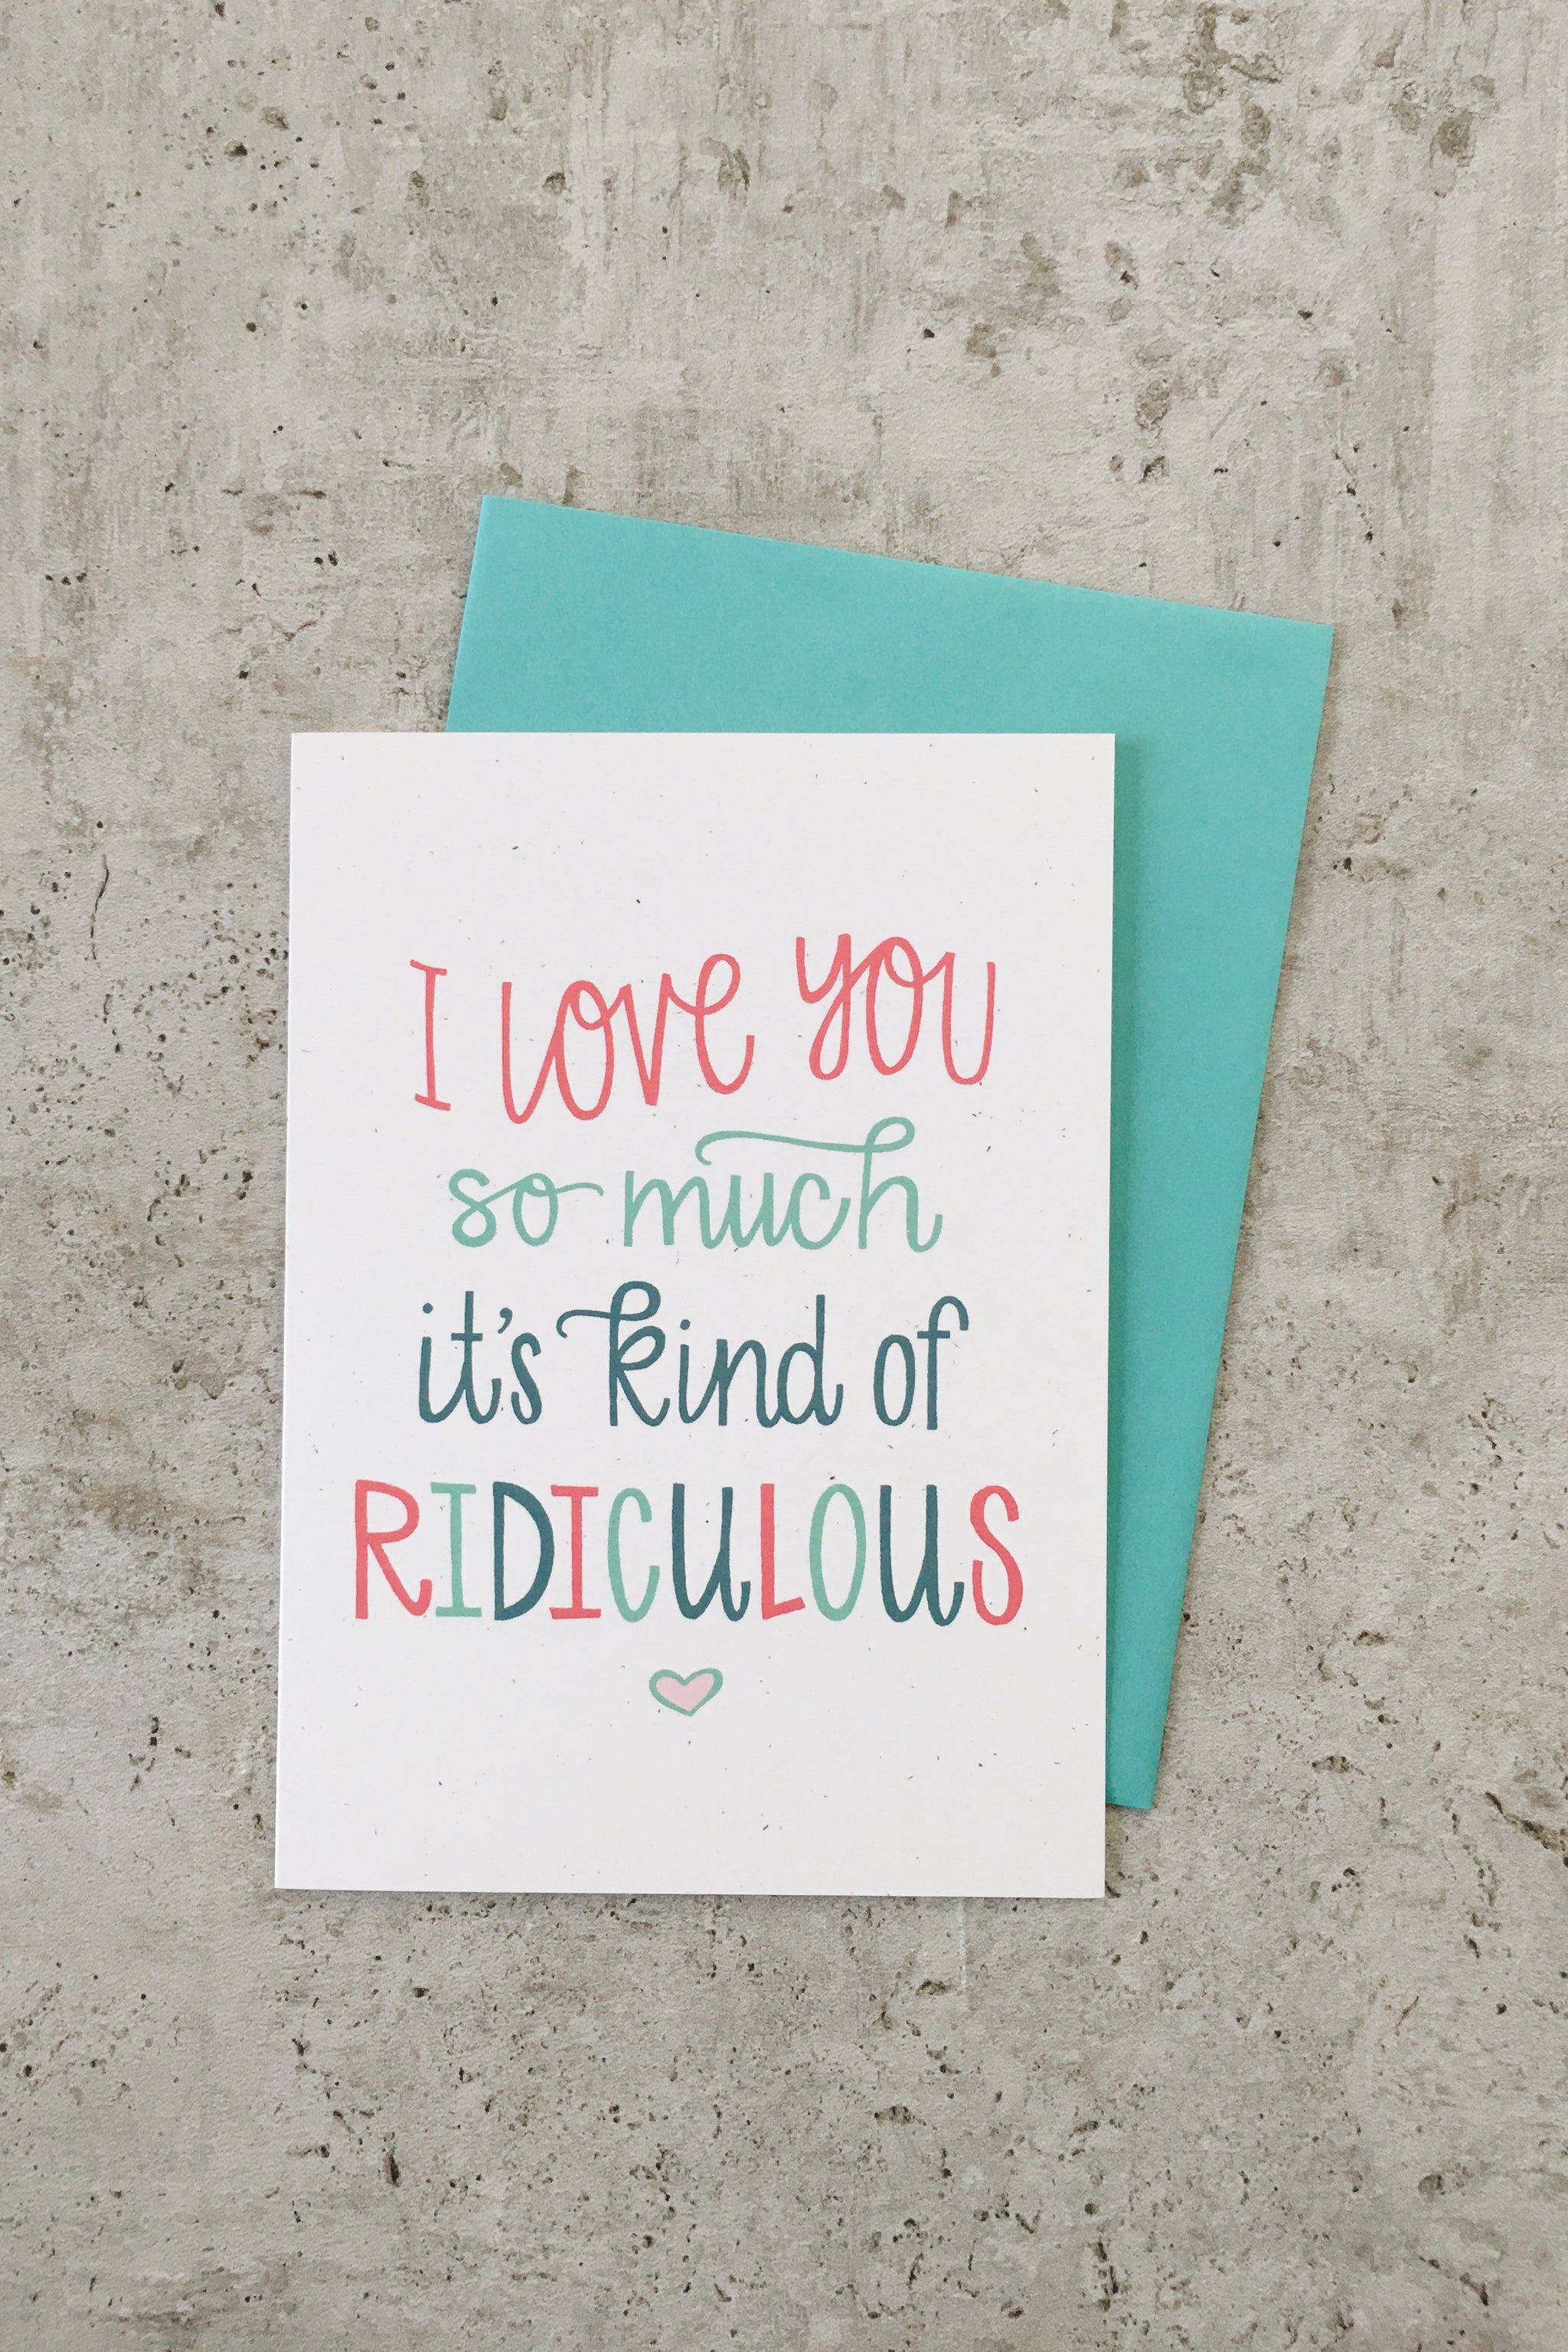 I love you
so much
it's kind of
RIDICULOUS